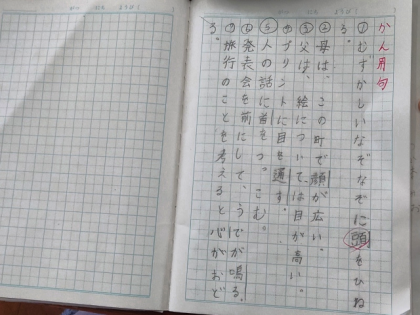 かん用句
①むずかしいなぞなぞに頭をひね
る。
②母は、この町で顔が広い。
③父は、絵については目が高い。
④プリントに目を通す。
⑤人の話に首をつっこむ。
⑥発表会を前にして、うでが鳴る。
⑦旅行のことを考えると心がおど
る。